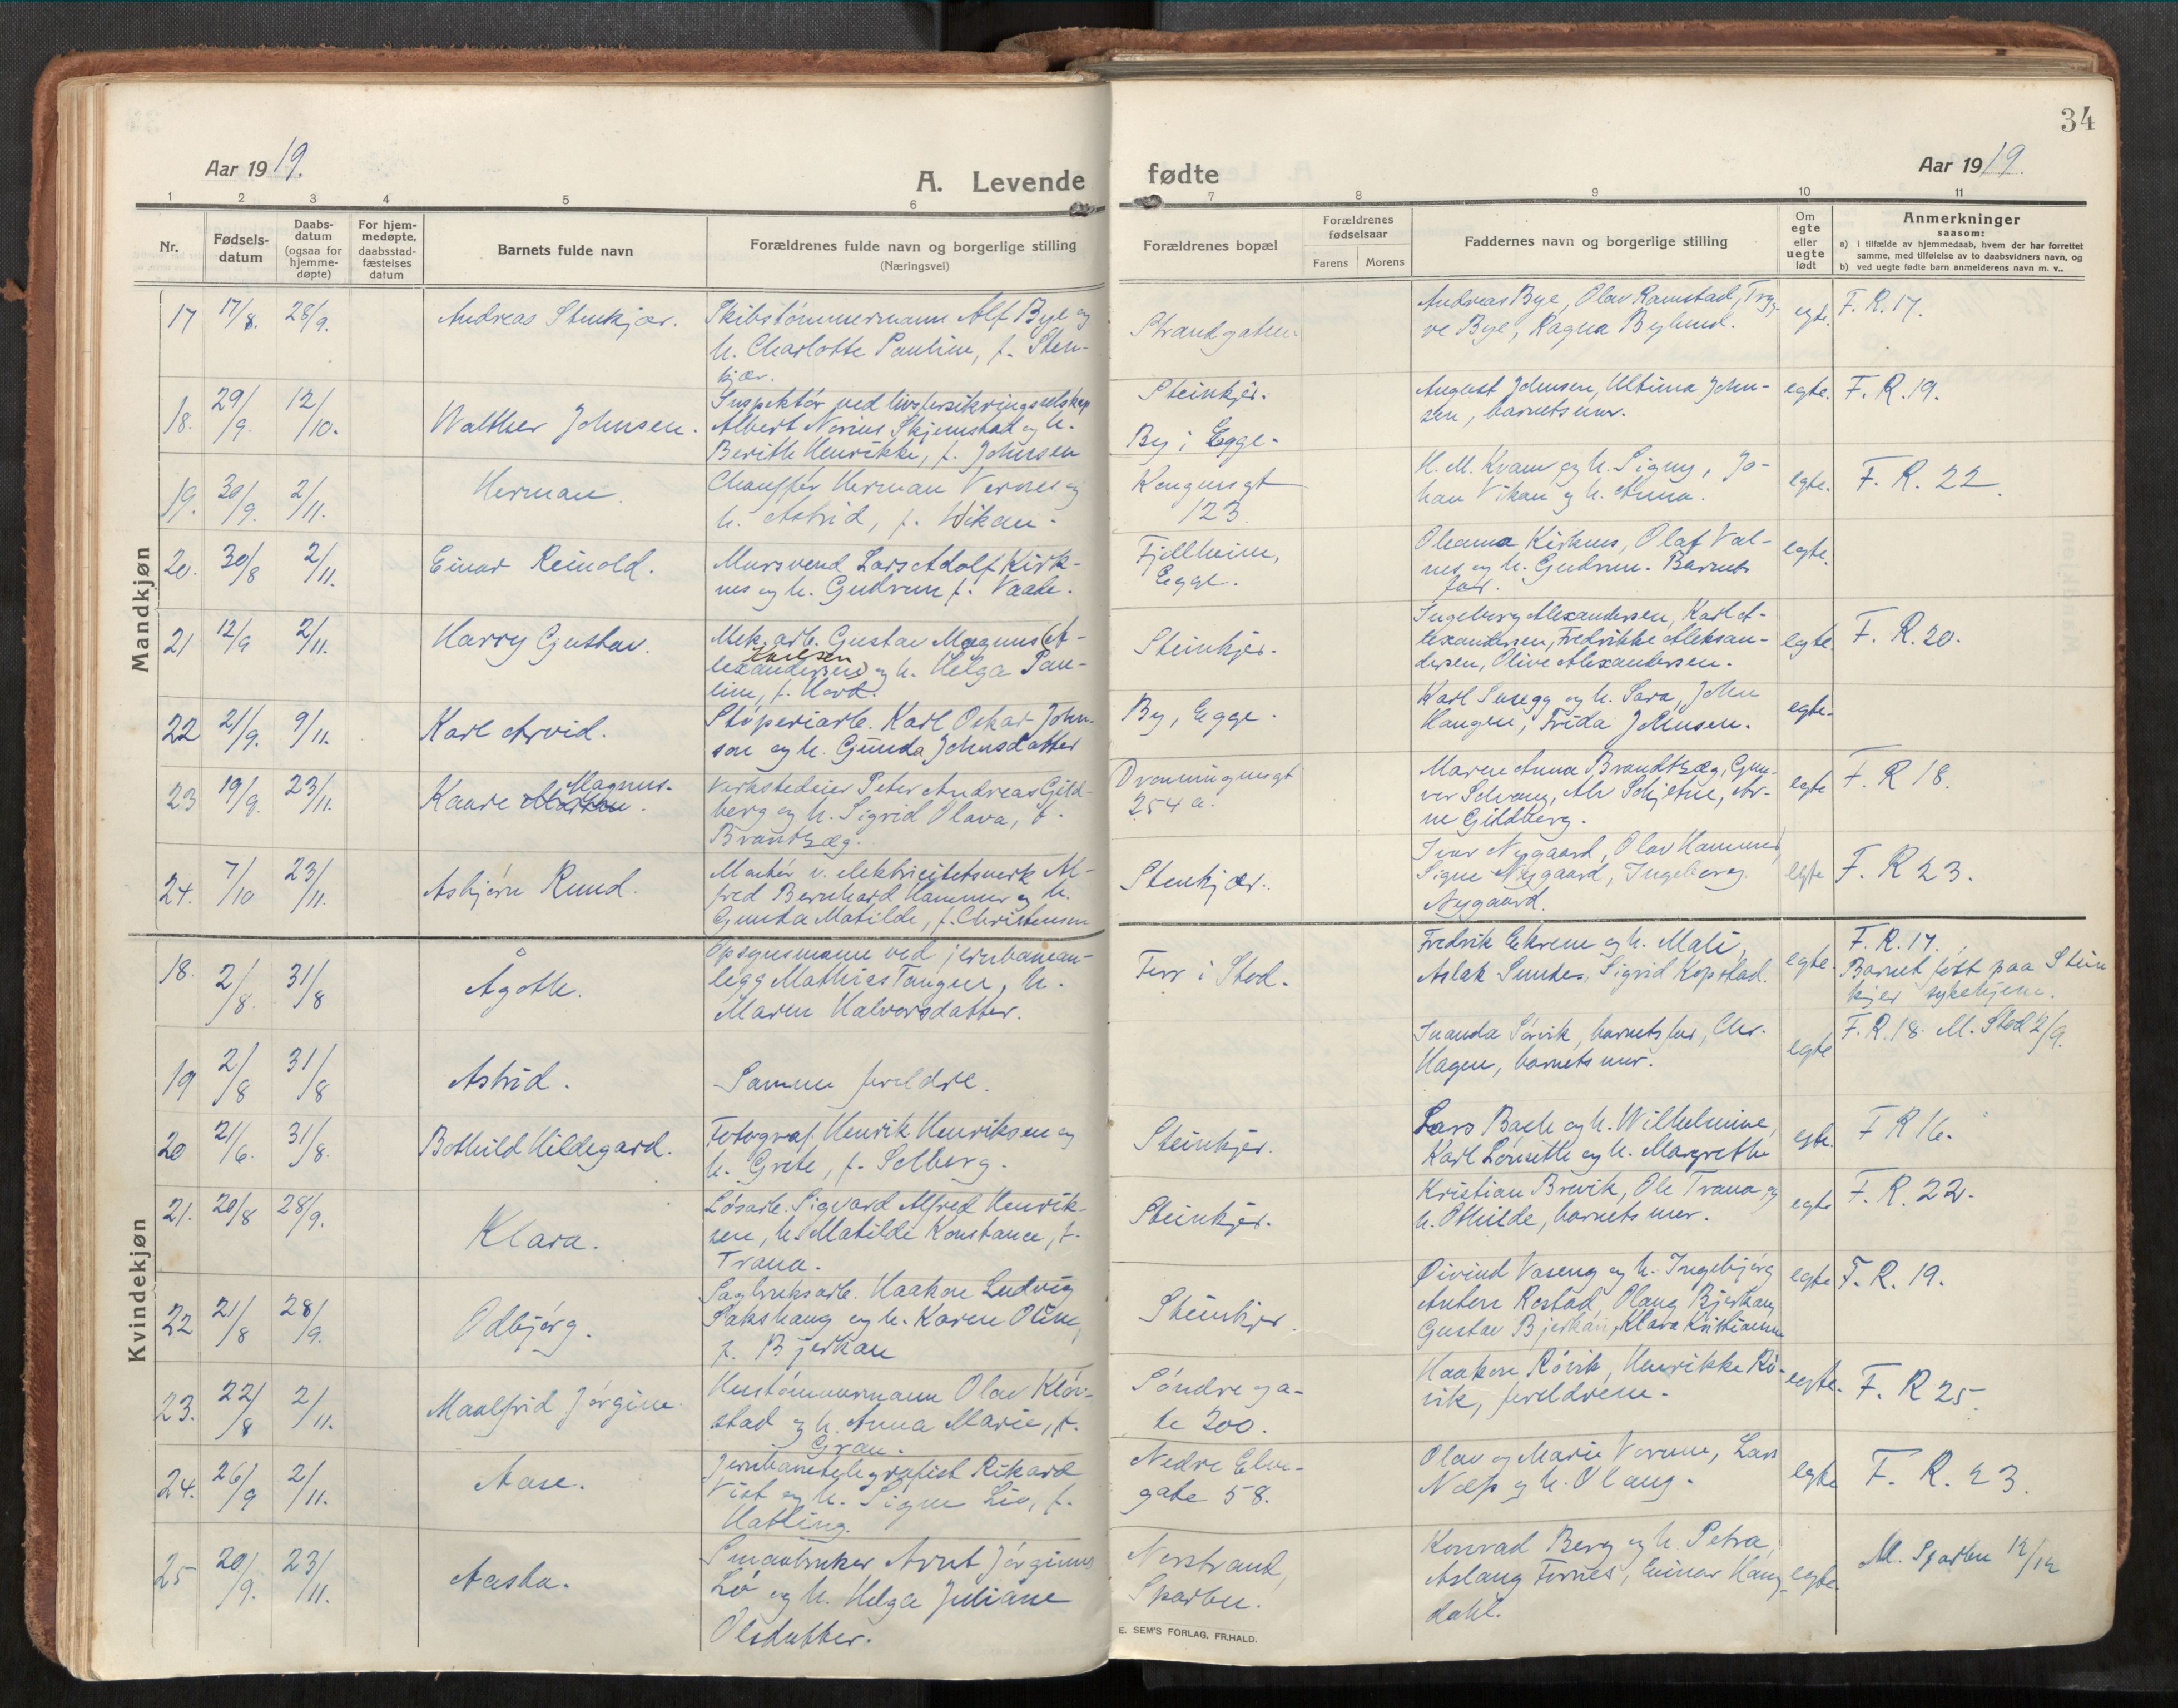 34
Aar 1919.
A. Levende fødte
Aar 1919.
1 2 3 4 5 6 7 8 9 10 11
Nr.
Fødsels-
datum
Daabs-
datum
(ogsaa for
hjemme-
døpte)
For hjem-
medøpte,
daabsstad-
fæstelses
datum
Barnets fulde navn
Forældrenes fulde navn og borgerlige stilling
(Næringsvei)
Forældrenes bopæl
Forældrenes
fødselsaar
Farens Morens
Faddernes navn og borgerlige stilling
Om
egte
eller
uegte
født
Anmerkninger
saasom:
a) i tilfælde av hjemmedaab, hvem der har forrettet
samme, med tilføielse av to daabsvidners navn, og
b) ved uegte fødte barn anmelderens navn m. v..
Mandkjøn
17 17/8. 28/9. Andreas Stenkjær.
Skibstømmermann Alf Bye og
h. Charlotte Pauline, f. Sten-
kjær.
Strandgaten.
Andreas Bye, Olav Ramstad, Tryg-
ve Bye, Ragna Bylund.
egte. F. R. 17.
18. 29/9. 12/10. Walther Johnsen.
Inspektør ved livsforsikringsselskap
Albert Norius Skjemstad og h.
Berithe Henrikke, f. Johnsen
Steinkjer.
By i Egge.
August Johnsen, Ultima John-
sen, barnets mor.
egte. F. R. 19.
19. 30/9. 2/11. Herman.
Chauffør Herman Vernes og
h. Astrid, f. Wikan.
Kongensgt
123.
H. M. Kvam og h. Signy, Jo-
han Vikan og h. Anna.
egte. F. R. 22.
20. 30/8 2/11. Einar Reinold.
Mursvend Lars Adolf Kirk-
nes og h. Gudrun f. Vaade.
Fjellheim,
Egge.
Oleanna Kirknes, Olaf Val-
nes og h. Gudrun. Barnets
far.
egte.
21 12/9 2/11. Harry Gustav.
Mek. arb. Gustav Magnus (A-
lexandersen) og h. Helga Pau-
line, f. Hard.
Steinkjer.
Ingeborg Alexandersen, Karl A-
lexandersen, Fredrikke Aleksan-
dersen, Olive Alexandersen.
egte. F. R. 20.
22 21/9. 9/11. Karl Arvid.
Støperiarb. Karl Oskar John-
son og h. Gunda Johnsdatter
By, Egge.
Karl Svaegg og h. Sara, John
Haugen, Frida Johnsen.
egte.
23 19/9. 23/11. Kaare Magnus.
Verkstedeier Peter Andreas Gild-
berg og h. Sigrid Olava, f.
Brandtzæg.
Dronningensgt
254 a.
Maren Anna Brandtzæg, Gun-
vor Selvaag, Alv Schjetne, Ar-
ne Gildberg.
egte F. R 18.
24. 7/10 23/11. Asbjørn Rund.
Montør v. elektricitetsverk Al-
fred Bernhard Hammer og h.
Gunda Matilde, f. Christensen
Stenkjær.
Ivar Nygaard, Olav Hammer,
Signe Nygaard, Ingeborg
Nygaard.
egte F. R 23.
Kvindekjøn
18. 2/8. 31/8 Ågoth.
Opsynsmann ved jernbanean-
legg Mathias Tangen, h.
Maren Halvorsdatter.
Five i Stod.
Fredrik Ekrene og h. Mali,
Aslak Sundes, Sigrid Kopstad.
egte. F. R. 17.
Barnet født paa Stein
kjer sykehjem.
19 2/8 31/8 Astrid.
Samme foreldre.
Inanda Sørvik, barnets far, Chr.
Hagen, barnets mor.
egte F. R. 18. M. Stod 2/9.
20 21/6. 31/8. Bothild Hildegard.
Fotograf Henrik Henriksen og
h. Grete, f. Solberg.
Steinkjer.
Lars Bach og h. Wilhelmine,
Karl Lønseth og h. Margrethe
egte. F R 16.
21. 20/8 28/9. Klara.
Løsarb. Sigvard Alfred Henrik-
sen, h. Matilde Konstance, f.
Trana.
Steinkjer.
Kristian Brevik, Ole Trana og
h. Othilde, barnets mor.
egte F. R. 22.
22 21/8 28/9. Odbjørg.
Sagbruksarb. Haakon Ludvig
Sakshaug og h. Karen Oline,
f. Bjerkan
Steinkjer.
Øivind Vaseng og h. Ingebjørg
Anton Rostad, Olaug Bjerkan,
Gustav Bjerkan, Klara Kristiansen
egte F. R. 19.
23. 22/8 2/11. Maalfrid Jørgine.
Hustømmermann Olav Kløv-
stad og h. Anna Marie, f.
Gran.
Søndre ga-
te 200.
Haakon Rövik, Henrikke Rö-
vik, foreldrene.
egte. F. R 25.
24. 26/9 2/11. Aase.
Jernbanetelegrafist Rikard
Vist og h. Signe Liv, f.
Hatling.
Nedre Elve-
gate 58.
Olav og Marie Vorum, Lars
Nelp og h. Olaug.
egte F. R. 23.
25 20/9. 23/11. Aasta.
Smaabruker Arnt Jørginus
Lø og h. Helga Juliane
Olsdatter.
Norstrand,
Sparbu.
Konrad Berg og h. Petra,
Aslaug Fornes, Einar Haug-
dahl.
egte M. Sparbu 12/12
E. SEM'S FORLAG, FR.HALD.